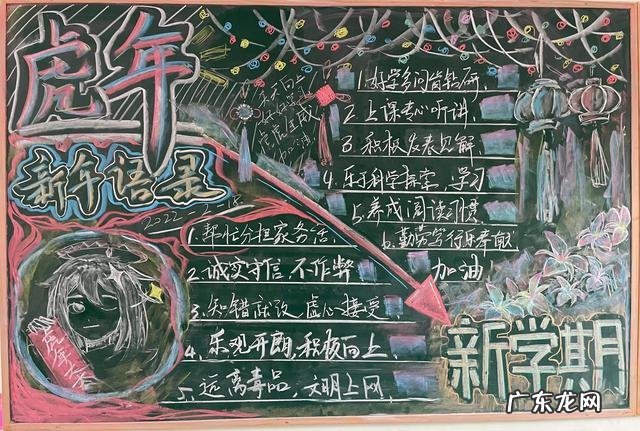 虎年
新年语录
2022.2.18
1.帮忙分担家务活.
2.诚实守信,不作弊
3.知错就改,虚心接受
4.乐观开朗,积极向上.
5.远离毒品,文明上网.
1.好学多问肯钻研.
2.上课专心听讲.
3.积极发表见解.
4.乐于科学探索,学习
5.养成阅读习惯
6.勤劳笃行乐奉献
加油
新学期
广东龙网